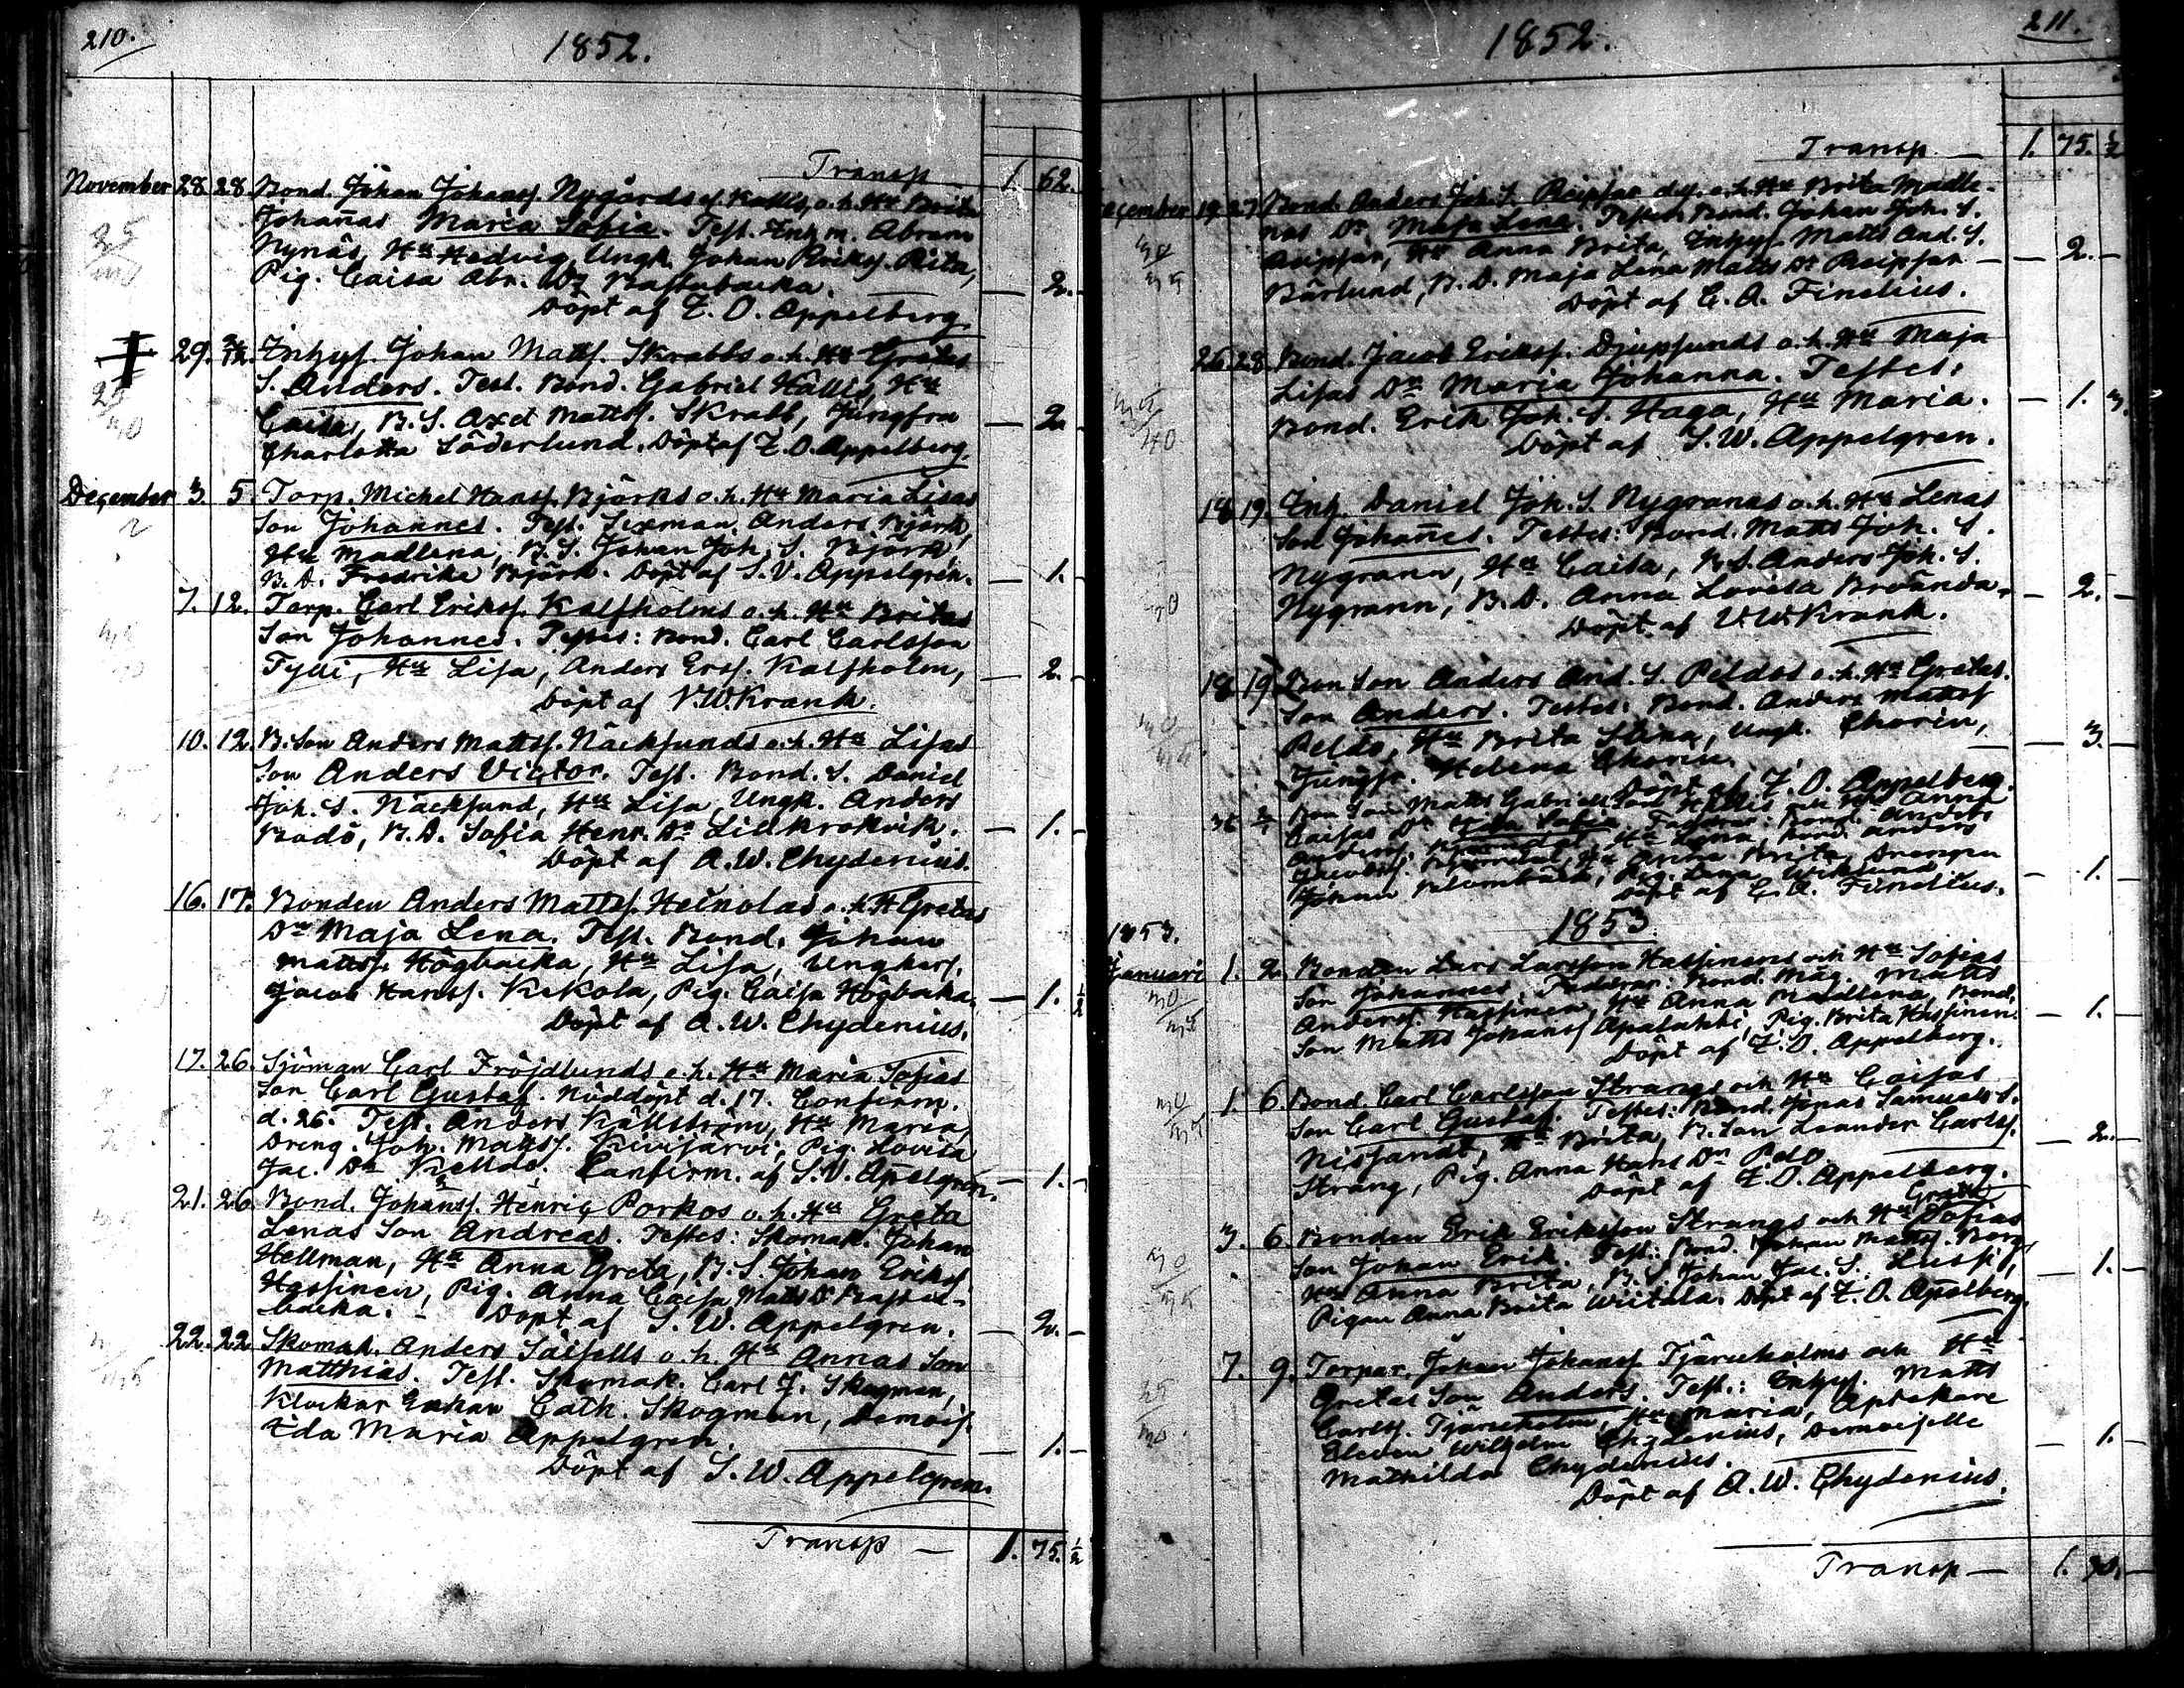 210.
1852.
Transp 1. 62.
November 28. 28. Bond. Johan Johanss. Nygårds el. Kallis, o. h. Hu Brita
Johannas Maria Sofia. Test. Inhm. Abram
Nynäs, Hu Hedvig, Ungk. Johan Erikss. Rita,
Pig. Caisa Abr. Dr Bastubacka. — 2. —
Döpt af F. O. Appelberg.
29. Inhys. Johan Matts. Skrabbs o. h. Hu Gretas
S. Anders. Test. Bond. Gabriel Källis, Hu
Caisa, B. S. Axel Mattss. Skrabb, Jungfru — 2.
Charlotta Söderlund. Döpt af F. O. Appelberg.
December 3. 5. Torp. Michel Hanss. Björks o. h. Hu Maria Lisas
Son Johannes. Test. Sexman Anders Björk,
Hu Madlena, B. S. Johan Joh. S. Björk,
B. D. Fredrika Björk. Döpt af S. W. Appelgren. — 1. —
7. 12. Torp. Carl Erikss. Kalfholms o. h. Hu Britas
Son Johannes. Testes: Bond. Carl Carlsson
Fylli, Hu Lisa, Anders Erss. Kalfholm, — 2. —
Döpt af V. W. Krank.
10. 12. B. Son Anders Mattss. Näcksunds o. h. Hu Lisas
Son Anders Victor. Test. Bond. S. Daniel
Joh. S. Näcksund, Hu Lisa, Ungk. Anders
Bodö, B. D. Sofia Henr. Dr Lillkrokvik. — 1. —
Döpt af A. W. Chydenius.
16. 17. Bonden Anders Mattss. Heinolas o. h. H Gretas
Dr Maja Lena. Test. Bond. Johan
Mattss. Högbacka, Hu Lisa, Ungkarl.
Jacob Hanss. Kekola, Pig. Caisa Högbacka. — 1. ½
Döpt af A. W. Chydenius.
17. 26. Sjöman Carl Fröjdlunds o. h. Hu Maria Sofias
Son Carl Gustaf. Nöddöpt d. 17. Confirm.
d. 26. Test. Anders Källström, Hu Maria,
Dreng. Joh. Mattss. Kivijärvi, Pig. Lovisa
Jac. Dr Confirm. af S. W. Apelgren. — 1. —
21. 26. Bond. Johanss. Henric Porkos o. h. Hu Greta
Lenas Son Andreas. Testes: Skomak. Johan
Hellman, Hu Anna Greta, B. S. Johan Erikss.
Hassinen, Pig. Anna Caisa Matts Dr Bastu-
backa. Döpt af S. W. Appelgren. — 2. —
22. 22 Skomak. Anders Säifells o. h. Hu Annas Son
Matthias. Test. Skomak. Carl J. Skogman,
Klockar Enkan Cath. Skogman, Demois.
Eda Maria Appelgren. — 1. —
Döpt af S. W. Appelgren.
Transp — 1. 75. ½
1852.
211.
Transp — 1. 75. ½
December 19. 27. Bond. Anders Joh. S. Reipsar o. h. Hu Brita Madle-
nas Dr Maja Lena. Testes: Bond. Johan Joh. S.
Reipsar, Hu Anna Brita, Inhys. Matts And. S.
Bärlund, B. D. Maja Lena Matts Dr Reipsar — 2. —
Döpt af C. A. Finelius.
26. 28. Bond. Jacob Erikss. Djupsunds o. h. Hu Maja
Lisas Dr Maria Johanna. Testes:
Bond. Erik Joh. S. Haga, Hu Maria. — 1.
Döpt af S. W. Appelgren.
18 19. Inh. Daniel Joh. S. Nygranas o. h. Hu Lenas
Son Johannes. Testes: Bond. Matts Joh. S.
Nygrann, Hu Caisa, B. S. Anders Joh. S.
Nygrann, B. D. Anna Lovisa Brvända. — 2. —
Döpt af V. W. Krank.
18 19. Bon Son Anders And. S. Peldos o. h. Hu Gretas
Son Anders. Testes: Bond. Anders Mattss
Peldo, Hu Brita Stina, Ungk. Chorin,
Jungfr. Helena Chorin. — 3. —
Döpt af F. O. Appelberg.
Bon Son Matts Gabriels Son Källis och Hu Anna
Caisas Dr Sofia. Faddrar: Bond. Anders
Hu Lena, Bond. Anders
Hu Anna Brita, Drengen
Johan Blombäck, Pig. Lena Wiklund — 1. —
Döpt af C. A. Finelius.
1853.
1853.
Januari 1. 2. Bonden Lars Larsson Hassinens och Hu Sofias
Son Johannes. Faddrar: Bond. Måg. Matts
Anderss. Hassinen, Hu Anna Madlena, Bond.
Son Matts Johanss Apalahti, Pig. Brita Hassinen. — 1. —
Döpt af F. O. Appelberg.
1. 6. Bond. Carl Carlsson Strangs och Hu Caisas
Son Carl Gustaf. Testes: Bond. Jonas Samuels S.
Nissandt, Hu Brita, B. Son Leander Carlss.
Strang, Pig. Anna Hans Dr Pelo. — 2. —
Döpt af F. O. Appelberg.
3. 6. Bonden Erik Eriksson Strangs och Hu Greta Sofias
Son Johan Erik. Test.: Bond. Johan Mattss. Borg,
Hu Anna Brita, B. S. Johan Jac. S. Lussi,
Pigan Anna Brita Wiitala. Döpt af F. O. Apelberg. — 1. —
7. 9. Torpar. Johan Johanss Tjäruholms och Hu
Gretas Son Anders. Test.: Inhys. Matts
Carlss. Tjäruholm, Hu Maria, Aptekare
Eleven Wilhelm Chydenius, Demoiselle
Mathilda Chydenius. — 1. —
Döpt af A. W. Chydenius.
Transp — 1. 90. —